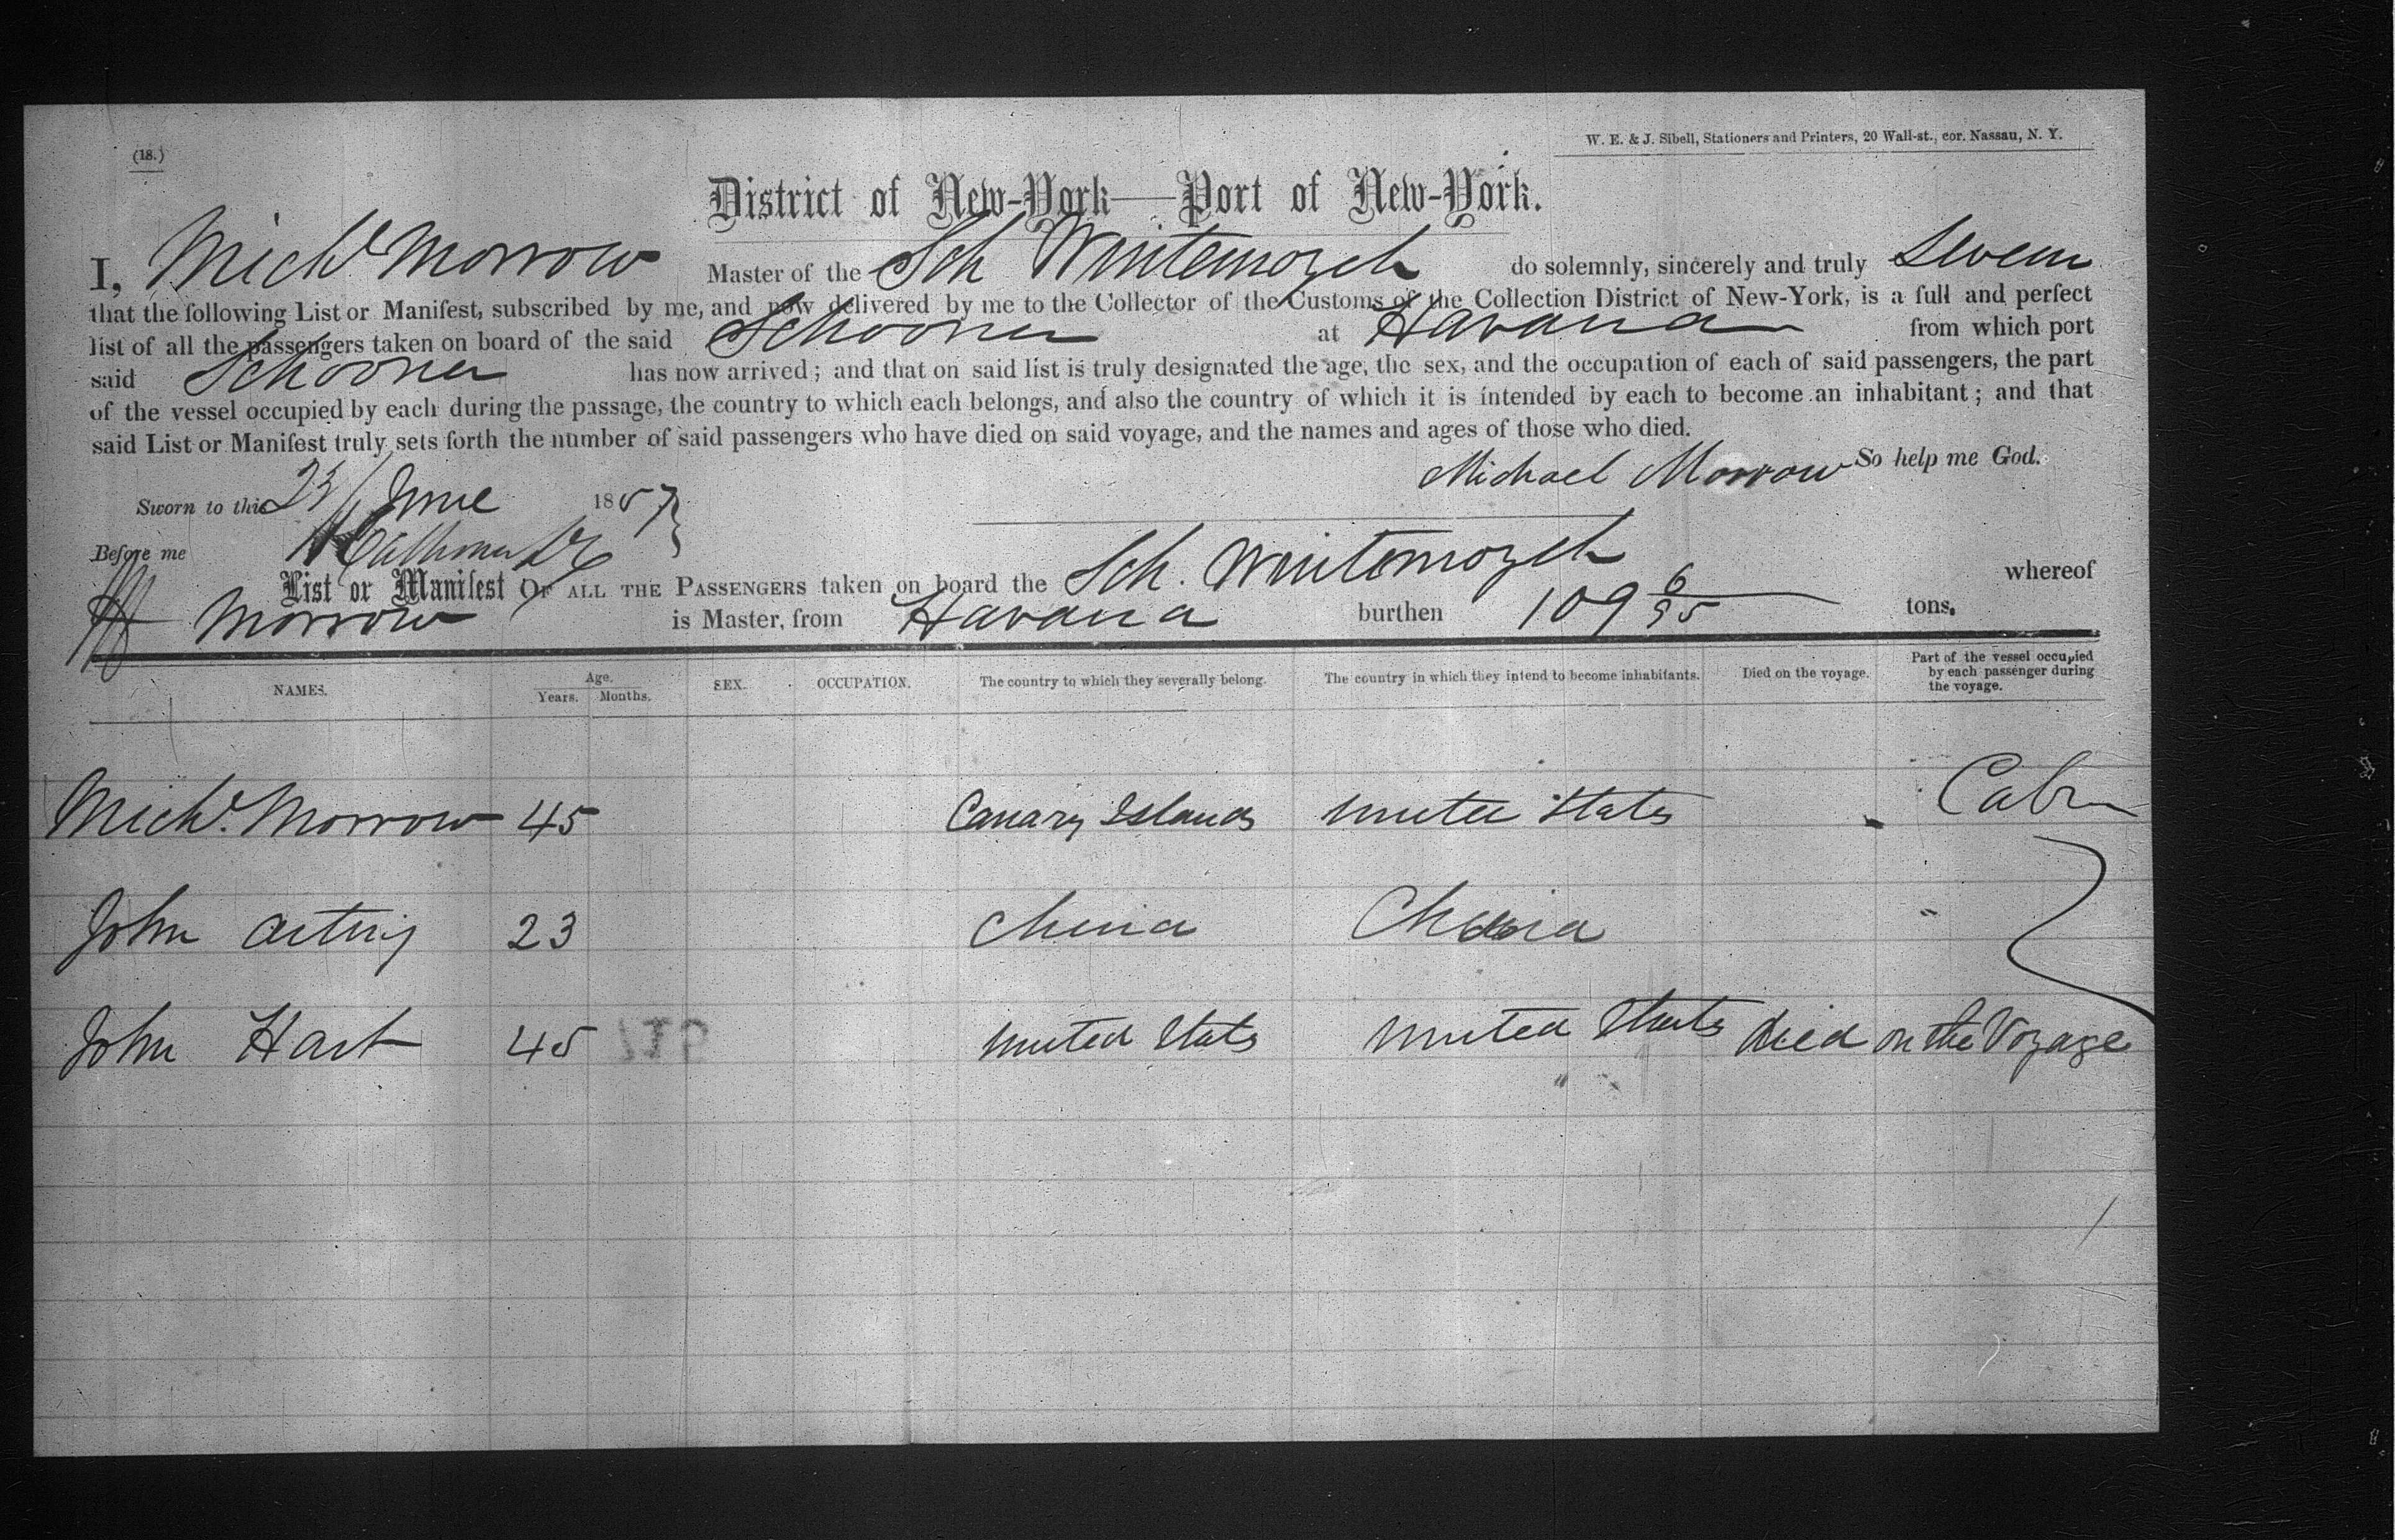 (18.)
W. E. & J. Sibell, Stationers and Printers, 20 Wall-st., cor. Nassau, N. Y.
District of New-York—Port of New-York.
I, Michl Morrow Master of the Sch do solemnly, sincerely and truly swear
that the following List or Manifest, subscribed by me, and now delivered by me to the Collector of the Customs of the Collection District of New-York, is a full and perfect
list of all the passengers taken on board of the said Schooner at Havana from which port
said Schooner has now arrived; and that on said list is truly designated the age, the sex, and the occupation of each of said passengers, the part
of the vessel occupied by each during the passage, the country to which each belongs, and also the country of which it is intended by each to become an inhabitant; and that
said List or Manifest truly sets forth the number of said passengers who have died on said voyage, and the names and ages of those who died.
Michael Morrow So help me God.
Sworn to this 23 June 1857
Before me
List or Manifest OF ALL THE PASSENGERS taken on board the Sch. whereof
Morrow is Master, from Havana burthen 109 6/95 tons.
NAMES. Age. Years. Months. SEX. OCCUPATION. The country to which they severally belong. The country in which they intend to become inhabitants. Died on the voyage. Part of the vessel occupied by each passenger during the voyage.
Michl. Morrow 45 Canary Islands United States Cabin
John 23 China China "
John Hart 45 United States United States Died on the Voyage